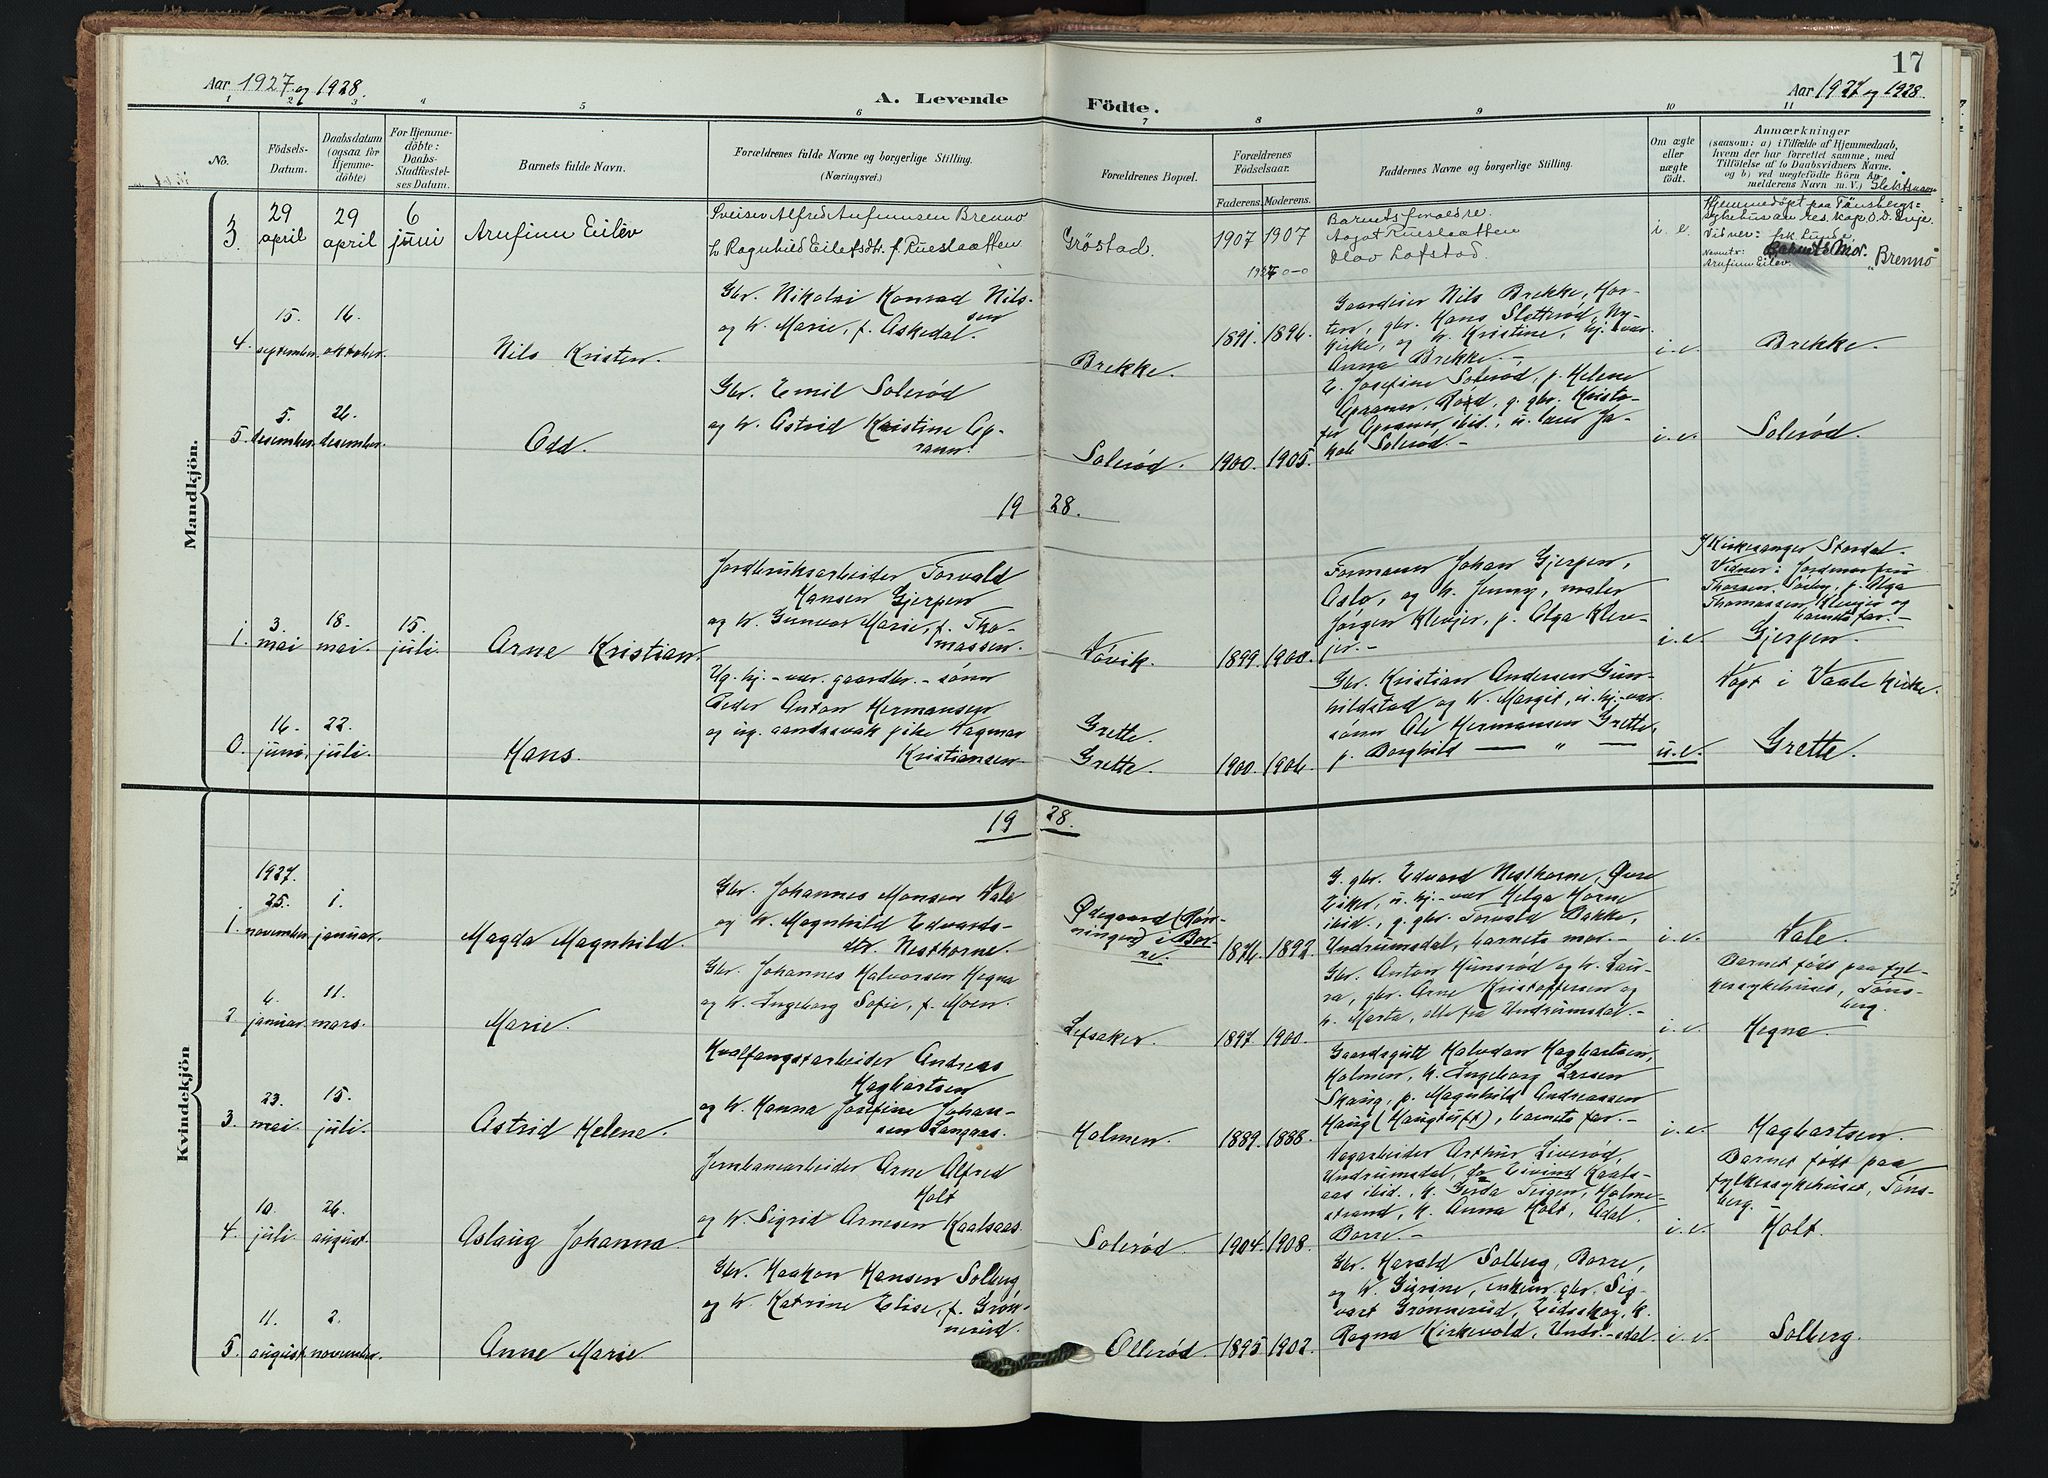 17
Aar 1927 og 1928.
A. Levende Födte.
Aar 1927 og 1928.
1 2 3 4 5 6 7 8 9 10 11
No.
Födsels-
Datum.
Daabsdatum
(ogsaa for
Hjemme-
döbte)
For Hjemme-
döbte:
Daabs-
Stadfæstel-
ses Datum.
Barnets fulde Navn.
Forældrenes fulde Navne og borgerlige Stilling.
(Næringsvei.)
Forældrenes Bopæl.
Forældrenes
Födselsaar.
Faderens. Moderens.
Faddernes Navne og borgerlige Stilling.
Om ægte
eller
uægte
födt.
Anmærkninger
(saasom: a) i Tilfælde af Hjemmedaab,
hvem der har forrettet samme, med
Tilföielse af to Daabsvidners Navne.
og b) ved uægtefödte Börn An-
melderens Navn m. V.) Slektsnavn
Mandkjön.
3
29 april
29 april
6 juni
Arnfinn Eilev
Sveiser Alfred Arnfinnsen Brenno
h Ragnhild Eilefsdtr. f. Rueslaatten
Gröstad.
1907 1907
Barnets foreldre.
Aagot Rueslaatten
Olav Lofstad.
i. e.
Hjemmedöpt paa Tönsbergs
sykehus av res. kap. O. D.
Vidner: frk. Lunde
Barnets Mor.
Navnetr:
Arnfinn Eilev.
Brenno
4.
15. september.
16. oktober.
Nils Kristen.
Gbr. Nikolai Konrad Nils-
sen
og h. Marie, f. Askedal.
Brekke.
1891. 1896.
Gaardeier Nils Brekke, Hor-
ten, gbr. Hans Sletterød, Ny-
kirke, og h. Kristine, hj.-vær.
Anna Brekke.
i. e.
Brekke.
5.
5. desember.
26. desember.
Odd.
Gbr. Emil Solerød
og h. Astrid Kristine Gp-
rann.
Solerød.
1900. 1905.
E. Josefine Solerød, p. Helene
Gpraner, g. gbr. Kristo-
fer Gpraner, ibid., u. lærer Ja-
kob Solerød.
i. e.
Solerød.
19 28.
1.
3. mai
18. mai.
15. juli.
Arne Kristian.
Jordbruksarbeider Torvald
Hansen Gjerpen
og h. Gunvor Marie, f. Tho-
massen.
Nøvik.
1899. 1900.
Formann Johan Gjerpen,
Oslo, og h. Jenny, maler
Jørgen Klevjer, p. Olga Klev-
jer.
i. e.
Kirkesanger Stordal.
Vidner: Jordmor fru
Thorsen, Søeby, p. Olga
Thomassen, Klevjer og
barnets far.
Gjerpen.
0.
16. juni.
22. juli.
Hans.
Ug. hj.-vær. gaardbr.-sønn
Peder Anton Hermansen
og ug. aandssvak pike Dagmar
Kristiansen
Grette.
Grette.
1900. 1906.
Gbr. Kristian Andersen Gun-
hildstad og h. Margit, u. hj.-vær.
sønn Ole Hermansen Grette,
p. Borghild — " —
u. e.
Døpt i Vaale kirke.
Grette.
Kvindekjön
19 28.
1.
1927.
25. november
1. januar.
Magda Magnhild.
Gbr. Johannes Monsen Vale
og h. Magnhild Edvards-
dtr. Nesthorne.
Ødegaard (Røn-
ningen) i Bor-
re.
1876. 1892.
G. gbr. Edvard Nesthorne, Øvre
Eiker, u. hj.-vær Helga Horne
ibid., g. gbr. Torvald Bakke,
Undrumsdal, barnets mor.
i. e.
Vale.
2
6. januar.
11. mars.
Marie.
Gbr. Johannes Halvorsen Hegna
og h. Ingeborg Sofie, f. Moen.
Lefsaker.
1897. 1900.
Gbr. Anton Humsrød og h. Lau-
ra, gbr. Arne Kristoffersen og
h. Marta, alle fra Undrumsdal.
i. e.
Barnet født paa fyl-
kessykehuset, Tøns-
berg.
Hegna.
3.
23. mai.
15. juli.
Astrid Helene.
Hvalfangstarbeider Andreas
Hagbartsen
og h. Hanna Josefine Johan-
sen Langaas.
Holmen.
1889. 1888.
Gaardsgutt Halvdan Hagbartsen,
Holmen, h. Ingeborg Larsen
Skaug, p. Magnhild Andreassen
Haug (Haugtuft), barnets far.
i. e.
Hagbartsen.
4.
10. juli.
26. august.
Aslaug Johanna.
Jernbanearbeider Arne Alfred
Holt
og h. Sigrid Arnesen Kaalsaas.
Solerød.
1904. 1908.
Dagarbeider Arthur Liverød,
Undrumsdal, do Eivind Kaals-
aas ibid., h. Gerda Teigen, Holme-
strand, h. Anna Holt, Adal,
Borre.
i. e.
Barnet født paa
fylkessykehuset, Tøns-
berg.
Holt.
5.
11. august.
2. november.
Anne Marie
Gbr. Haakon Hansen Solberg
og h. Katrine Elise, f. Grøn-
nerud.
Ollerød.
1895 1902.
Gbr. Harald Solberg, Borre,
og h. Gurine, enkem. gbr. Sig-
vart Grønnerud, Eidsskog, h.
Ragna Kirkevold, Undr.-sdal.
i. e.
Solberg.